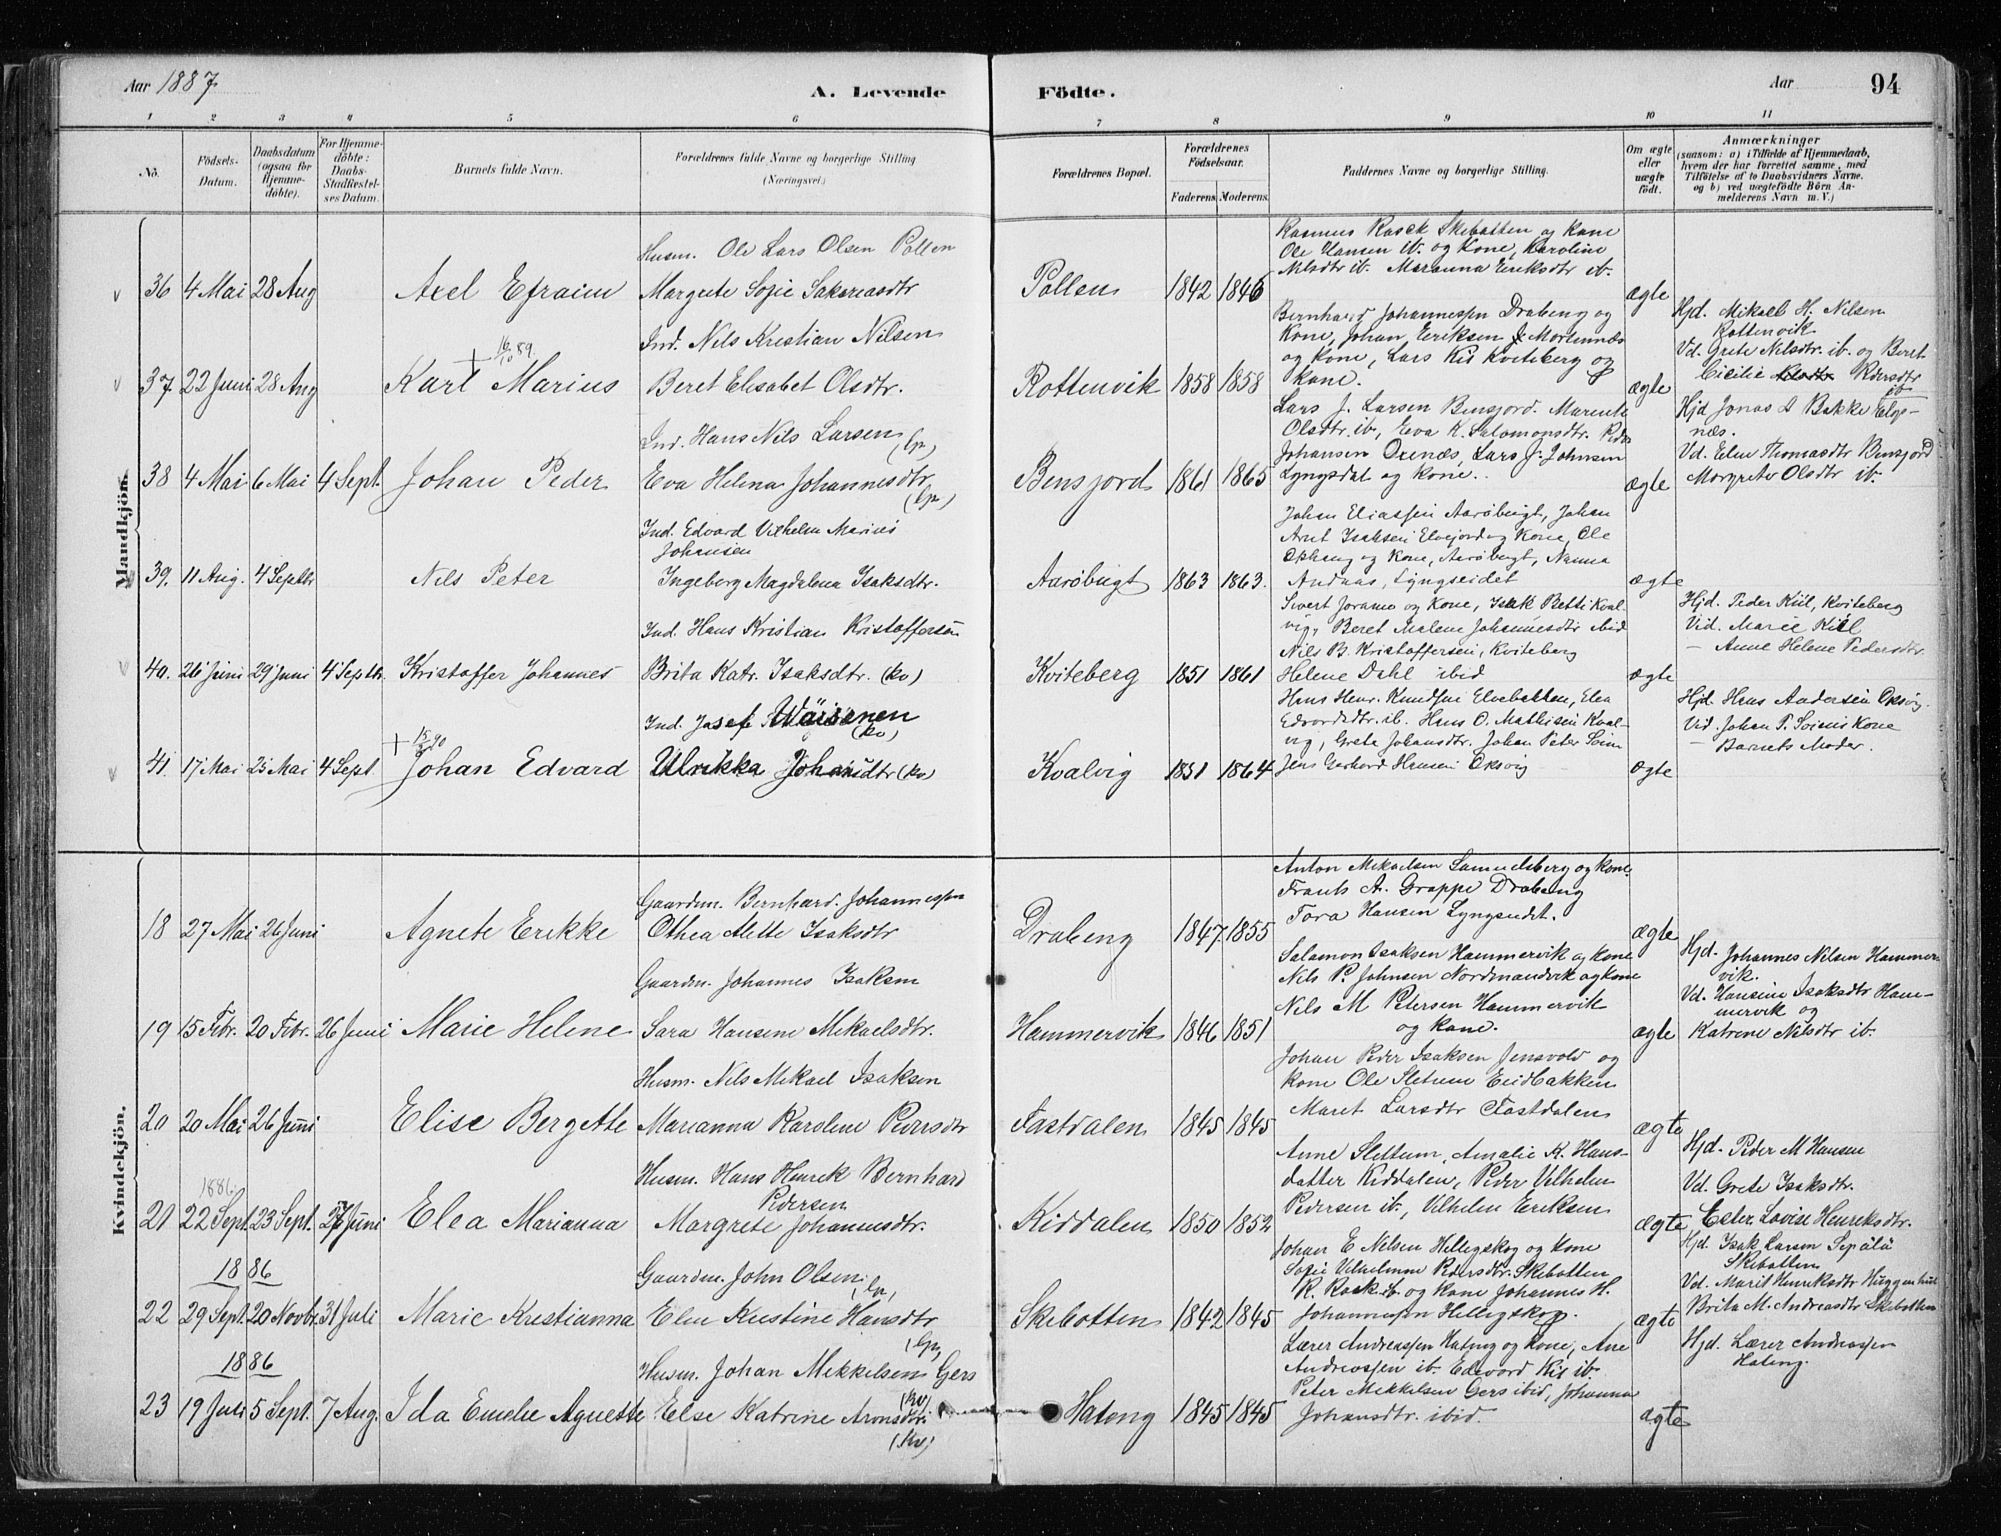 Aar 1887
A. Levende Födte.
Aar 94
1 2 3 4 5 6 7 8 9 10 11
No.
Födsels-Datum.
Daabsdatum (ogsaa för Hjemme-döbte).
For Hjemme-döbte: Daabs-Stadfæstel-ses Datum.
Barnets fulde Navn.
Forældrenes fulde Navne og borgerlige Stilling (Næringsvei.)
Forældrenes Bopæl.
Forældrenes Födselsaar.
Faderens. Moderens.
Faddernes Navne og borgerlige Stilling.
Om ægte eller uægte födt.
Anmærkninger
(saasom: a) i Tilfælde af Hjemmedaab,
hvem der har forrettet samme, med
Tilföielse af to Daabsvidners Navne.
og b) ved uægtefödte Börn An-
melderens Navn m. V.)
Mandkjön.
Husm. Ole Lars Olsen Pollen
36 4 Mai 28 Aug Axel Efraim Margrete Sofie Sakariasdtr
Pollen 1842 1846
Rasmus Rasch Skibotten og Kone
Ole Hansen ib. og Kone, Karoline
Nilsdtr ib. Marianna Eriksdtr ib.
ægte
Ind. Nils Kristian Nilsen
+ 16/10 89
37 22 Juni 28 Aug Karl Marius Beret Elisabet Olsdtr.
Rottenvik 1858 1858
Bernhard Johannessen Drabeng og
Kone, Johan Eriksen Mortennæs
og Kone, Lars Kiil Kviteberg og
Kone.
ægte
Hjd. Mikael H. Nilsen
Rottenvik
Vd. Grete Nilsdtr. ib. og Beret
Cicilie Pedersdtr
ib
Ind. Hans Nils Larsen (lp)
38 4 Mai 6 Mai 4 Sept Johan Peder Eva Helena Johannesdtr
(lp)
Bensjord 1861 1865
Lars J. Larsen Bensjord. Marente
Olsdtr. ib, Eva K. Salomonsdtr. Peder
Johansen Oxenæs, Lars J. Johnsen
Lyngsdal og Kone.
ægte
Hjd Jonas A Bakke
næs.
Vd. Elen Thomasdtr Bensjord
Margrete Olsdtr ib.
Ind. Edvard Vilhelm Marius
Johansen
39. 11 Aug. 4 Septbr Nils Peter Ingeborg Magdalena Isaksdtr.
Aarøbugt 1863 1863.
Johan Eliassen Aarøbugt, Johan
Arnt Isaksen Elvejord og Kone, Ole
og Kone, Aarøbugt, Nanna
Andaas, Lyngseidet
ægte
Ind. Hans Kristian Kristoffersen
40. 26 Juni 29 Juni 4 Septbr. Kristoffer Johannes Brita Katr. Isaksdtr. (kv)
Kviteberg 1851 1861
Sivert Joramo og Kone, Isak Betti Kval-
vig, Beret Malene Johannesdtr ibid
Nils B. Kristoffersen, Kviteberg
Helene Dahl ibid
ægte
Hjd. Peder Kiil, Kviteberg
Vid. Marie Kiil
— Anne Helene Pedersdtr.
Ind. Josef Wäisänen
(kv)
+ 15/ 90
41. 17 Mai 25 Mai 4 Sept Johan Edvard Ulrikka Johansdtr (kv)
Kvalvig 1851 1864
Hans Henr. Knudsen Elvebakken, Elea
Edvardsdtr. ib. Hans O. Mathisen Kval-
vig, Grete Johansdtr. Johan Peter Soini
Jens Gerhard Hansen Oksvig
ægte
Hjd. Hans Andersen Oksvig.
Vid. Johan P. Soinis Kone
— Barnets Moder.
Kvindekjön.
Gaardm. Bernhard Johannessen
18 27 Mai 26 Juni Agnete Erikke Othea Mette Isaksdtr
Drabeng 1847 1855
Anton Mikaelsen Samuelsberg og Kone.
Frants A. Grappe Drabeng
Tora Hansen Lyngseidet.
ægte
Gaardm. Johannes Isaksen
19 15 Febr. 20 Febr. 26 Juni Marie Helene Sara Hansine Mikaelsdtr.
Hammervik 1846 1851
Salamon Isaksen Hammervik og Kone
Nils P. Johnsen Nordmandvik og Kone
Nils M Petersen Hammervik
og Kone.
ægte
Hjd. Johannes Nilsen Hammer-
vik.
Vd. Hansine Isaksdtr Ham-
mervik og
Katrine Nilsdtr ib.
Husm. Nils Mikael Isaksen
20 20 Mai 26 Juni Elise Bergette Marianna Karoline Pedersdtr
Fastdalen 1845 1845
Johan Peder Isaksen Jensvold og
Kone Ole Sletum Eidbakken
Maret Larsdtr Fastdalen
ægte
Husm. Hans Henrik Bernhard
Pedersen
1886.
21 22 Sept. 23 Sept. 27 Juni Elea Marianna Margrete Johannesdtr.
Kiddalen 1850 1852
Anne Slettum, Amalie K. Hans-
datter Kiddalen, Peder Vilhelm
Pedersen ib., Vilhelm Eriksen
ægte
Hjd. Peder M Hansen
Vd. Grete Isaksdtr.
Ester Lovise Henriksdtr.
1886
Gaardm. John Olsen (lp)
22 29 Sept. 20 Novbr. 31 Juli Marie Kristianna Elen Kirstine Hansdtr
(lp)
Skibotten 1842 1845
Johan E Nelsen Helligskog og Kone
Sofie Vilhelmine Pedersdtr. Skibotten
R. Rask ib. og Kone Johannes H.
Johannessen Helligskog.
ægte
Hjd. Isak Larsen Sepälä
Skibotten
Vd. Marit Henriksdtr Huggenhul
Brita M. Andreasdtr Skibotten
1886
Husm. Johan Mikkelsen Gers
(kv)
23 19 Juli 5 Sept. 7 Aug. Ida Emelie Agnette Else Katrine Aronsdtr
(kv)
Hateng 1845 1845
Lærer Andreassen Hateng og Kone, Ane
Andreassen ib. Edevard Kiil ib.
Peter Mikkelsen Gers ibid, Johanna
Johansdtr. ibid.
ægte
Hjd. Lærer Andreassen
Hateng.